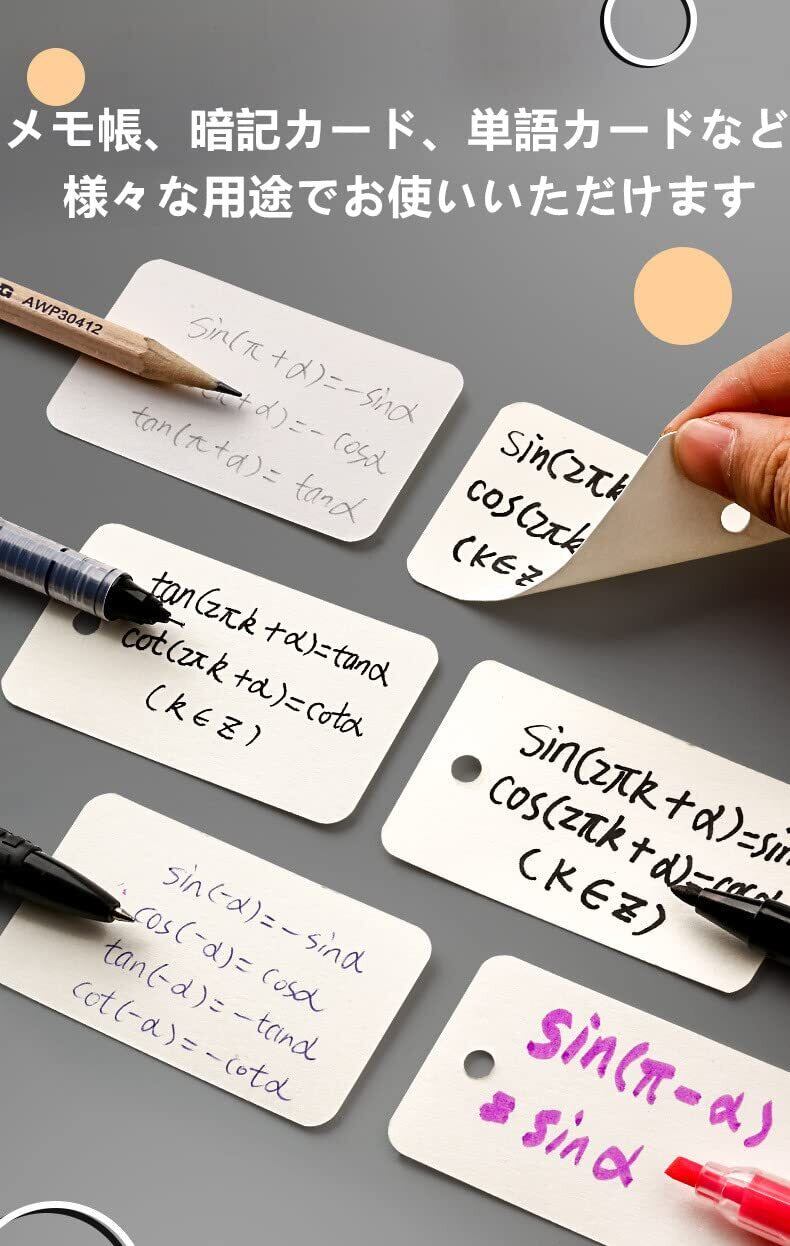 メモ帳、暗記カード、単語カードなど
様々な用途でお使いいただけます
G AWP30412
sin(π+α)=-sinα
π+α)=-cosα
tan(π+α)=tanα
sin(2πk
cos(2πk
(k∈Z
tan(2πk+α)=tanα
cot(2πk+α)=cotα
(k∈Z)
sin(2πk+α)=sin
cos(2πk+α)=cosα
(k∈Z)
sin(-α)=-sinα
cos(-α)=cosα
tan(-α)=-tanα
cot(-α)=-cotα
sin(π-α)
=sinα